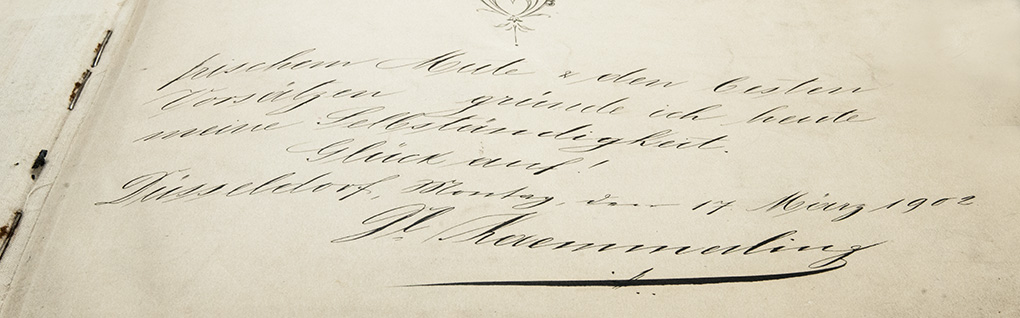 frischem Mute & den besten
Vorsätzen gründe ich heute
meine Selbstündigkeit.
Glück auf!
Düsseldorf, Montag, den 17. März 1902
Kaemmerling